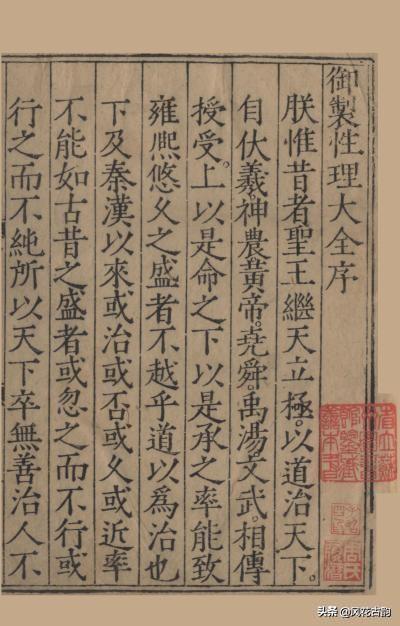 御製性理大全序
朕惟昔者聖王繼天立極。以道治天下。
自伏羲。神農黃帝。堯舜。禹湯。文武。相傳
授受。上以是命之下以是承之率能致
雍熈悠久之盛者不越乎道以為治也
下及秦漢以來或治或否或久或近率
不能如古昔之盛者或忽之而不行或
行之而不純所以天下卒無善治人不
头条 @风花古韵